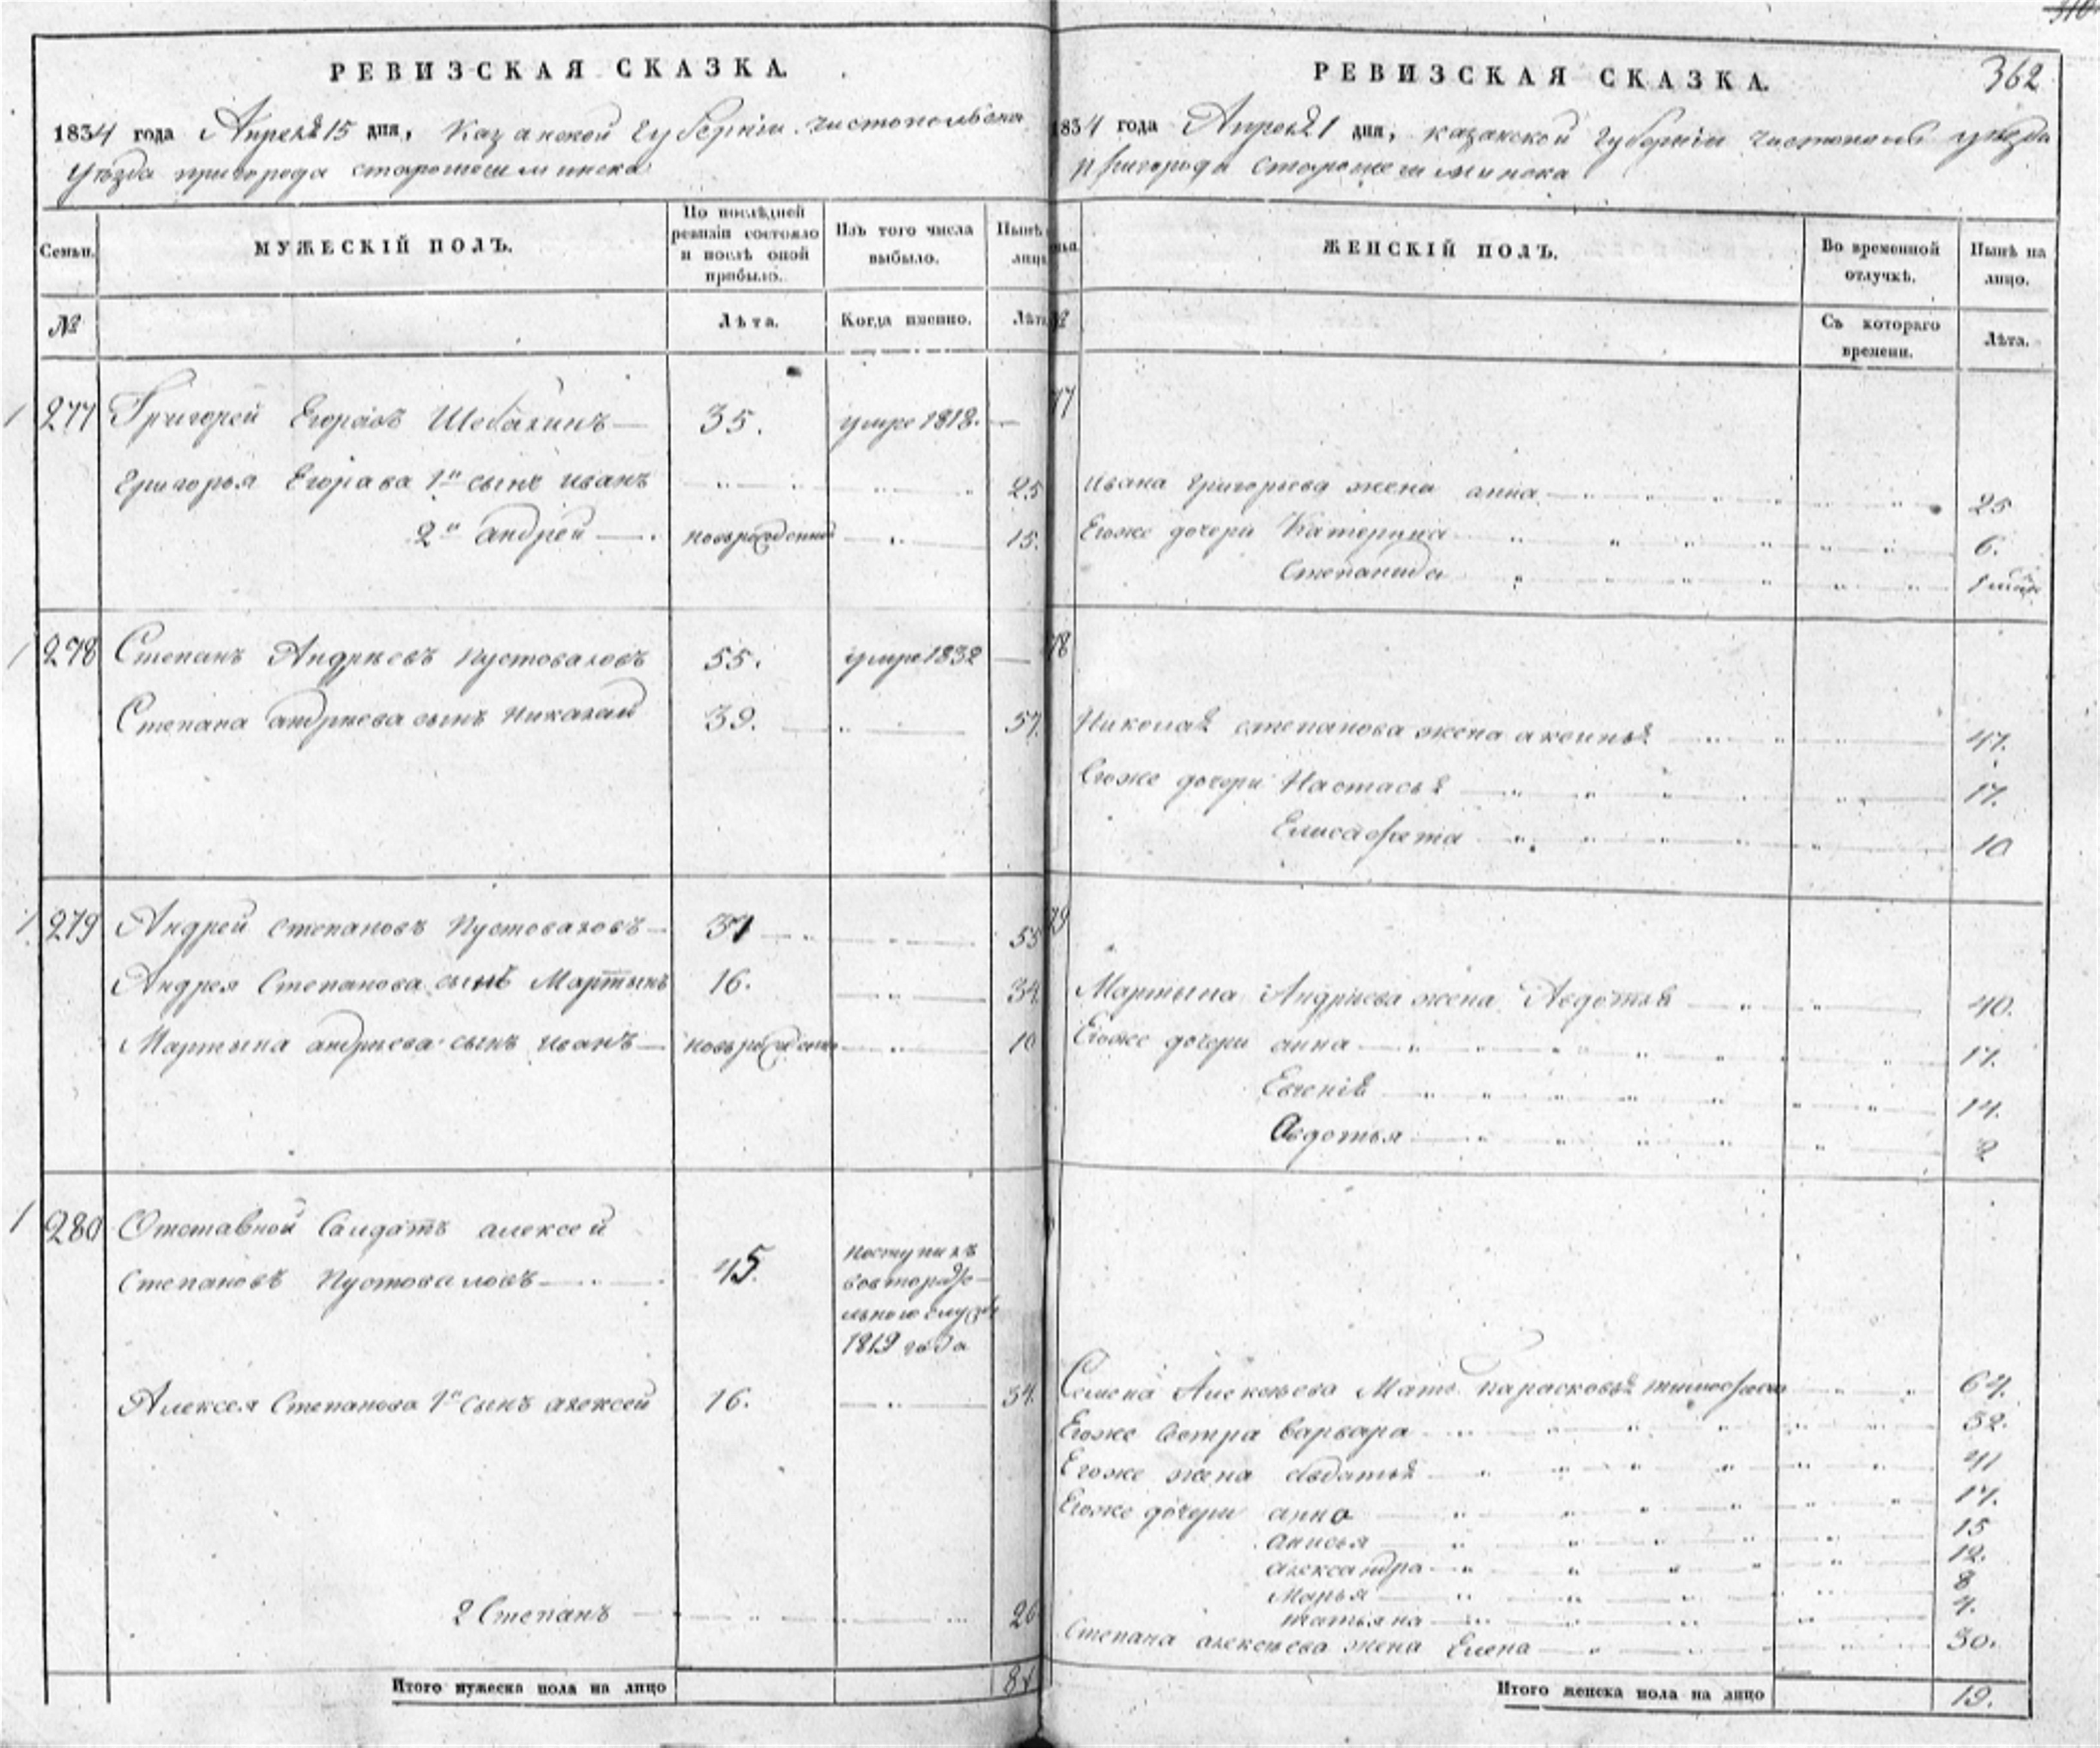 РЕВИЗСКАЯ СКАЗКА.
1834 года Апреля 15 дня, Казанской Губернiи Чистопольска
уезда пригорода старошешминска
Семьи.
МУЖЕСКІЙ ПОЛЪ.
По послѣдней ревизіи состояло и послѣ оной прибыло.
Изъ того числа выбыло.
Нынѣ лицо
№
Лѣта.
Когда именно.
Лѣта
1 277 Григорей Егоровъ 35. умре 1818. —
Григорья Егорава 1й сынъ иванъ 25
2й андрей новърожденной 15.
1 278 Степанъ Андрѣевъ пустоваловъ 55. умре 1832 —
Степана андрѣева сынъ Никалай 39. 57.
1 279 Андрей степановъ Пустоваловъ 37 55
Андрея Степанова сынъ Мартынъ 16. 34.
Мартына андрѣева сынъ иванъ новърожденной 10
1 280 Отставной Салдатъ алексей
Степановъ Пустоваловъ 45. поступилъ
1819 года
Алексея Степанова 1й сынъ алексей 16. 34.
2 Степанъ 26
Итого мужеска пола на лицо 8
362
РЕВИЗСКАЯ СКАЗКА.
1834 года Апреля 1 дня, казанской Губернiи чистополь уѣзда
пригорода Старошешминска
№
ЖЕНСКІЙ ПОЛЪ.
Во временной отлучкѣ.
Нынѣ на лицо.
Съ котораго времени.
Лѣта.
77
ивана Григорьева жена анна 25
Егоже дочери Катерина 6.
Степанида 1
78
Николая степанова жена аксинья 47.
Егоже дочери Настасья 17.
Елисафета 10
79
Мартына Андрѣева жена Авдотья 40.
Егоже дочери анна 17.
Евгенiя 14.
Авдотья 2
Семена Алексѣева Мать парасковья 64.
Егоже Сестра Варвара 32.
Егоже жена авдотья 41
Егоже дочери анна 17.
анисья 15
александра 12.
Марья 8
татьяна 4.
Степана алексѣева жена Елена 30.
Итого женска пола на лицо 19.